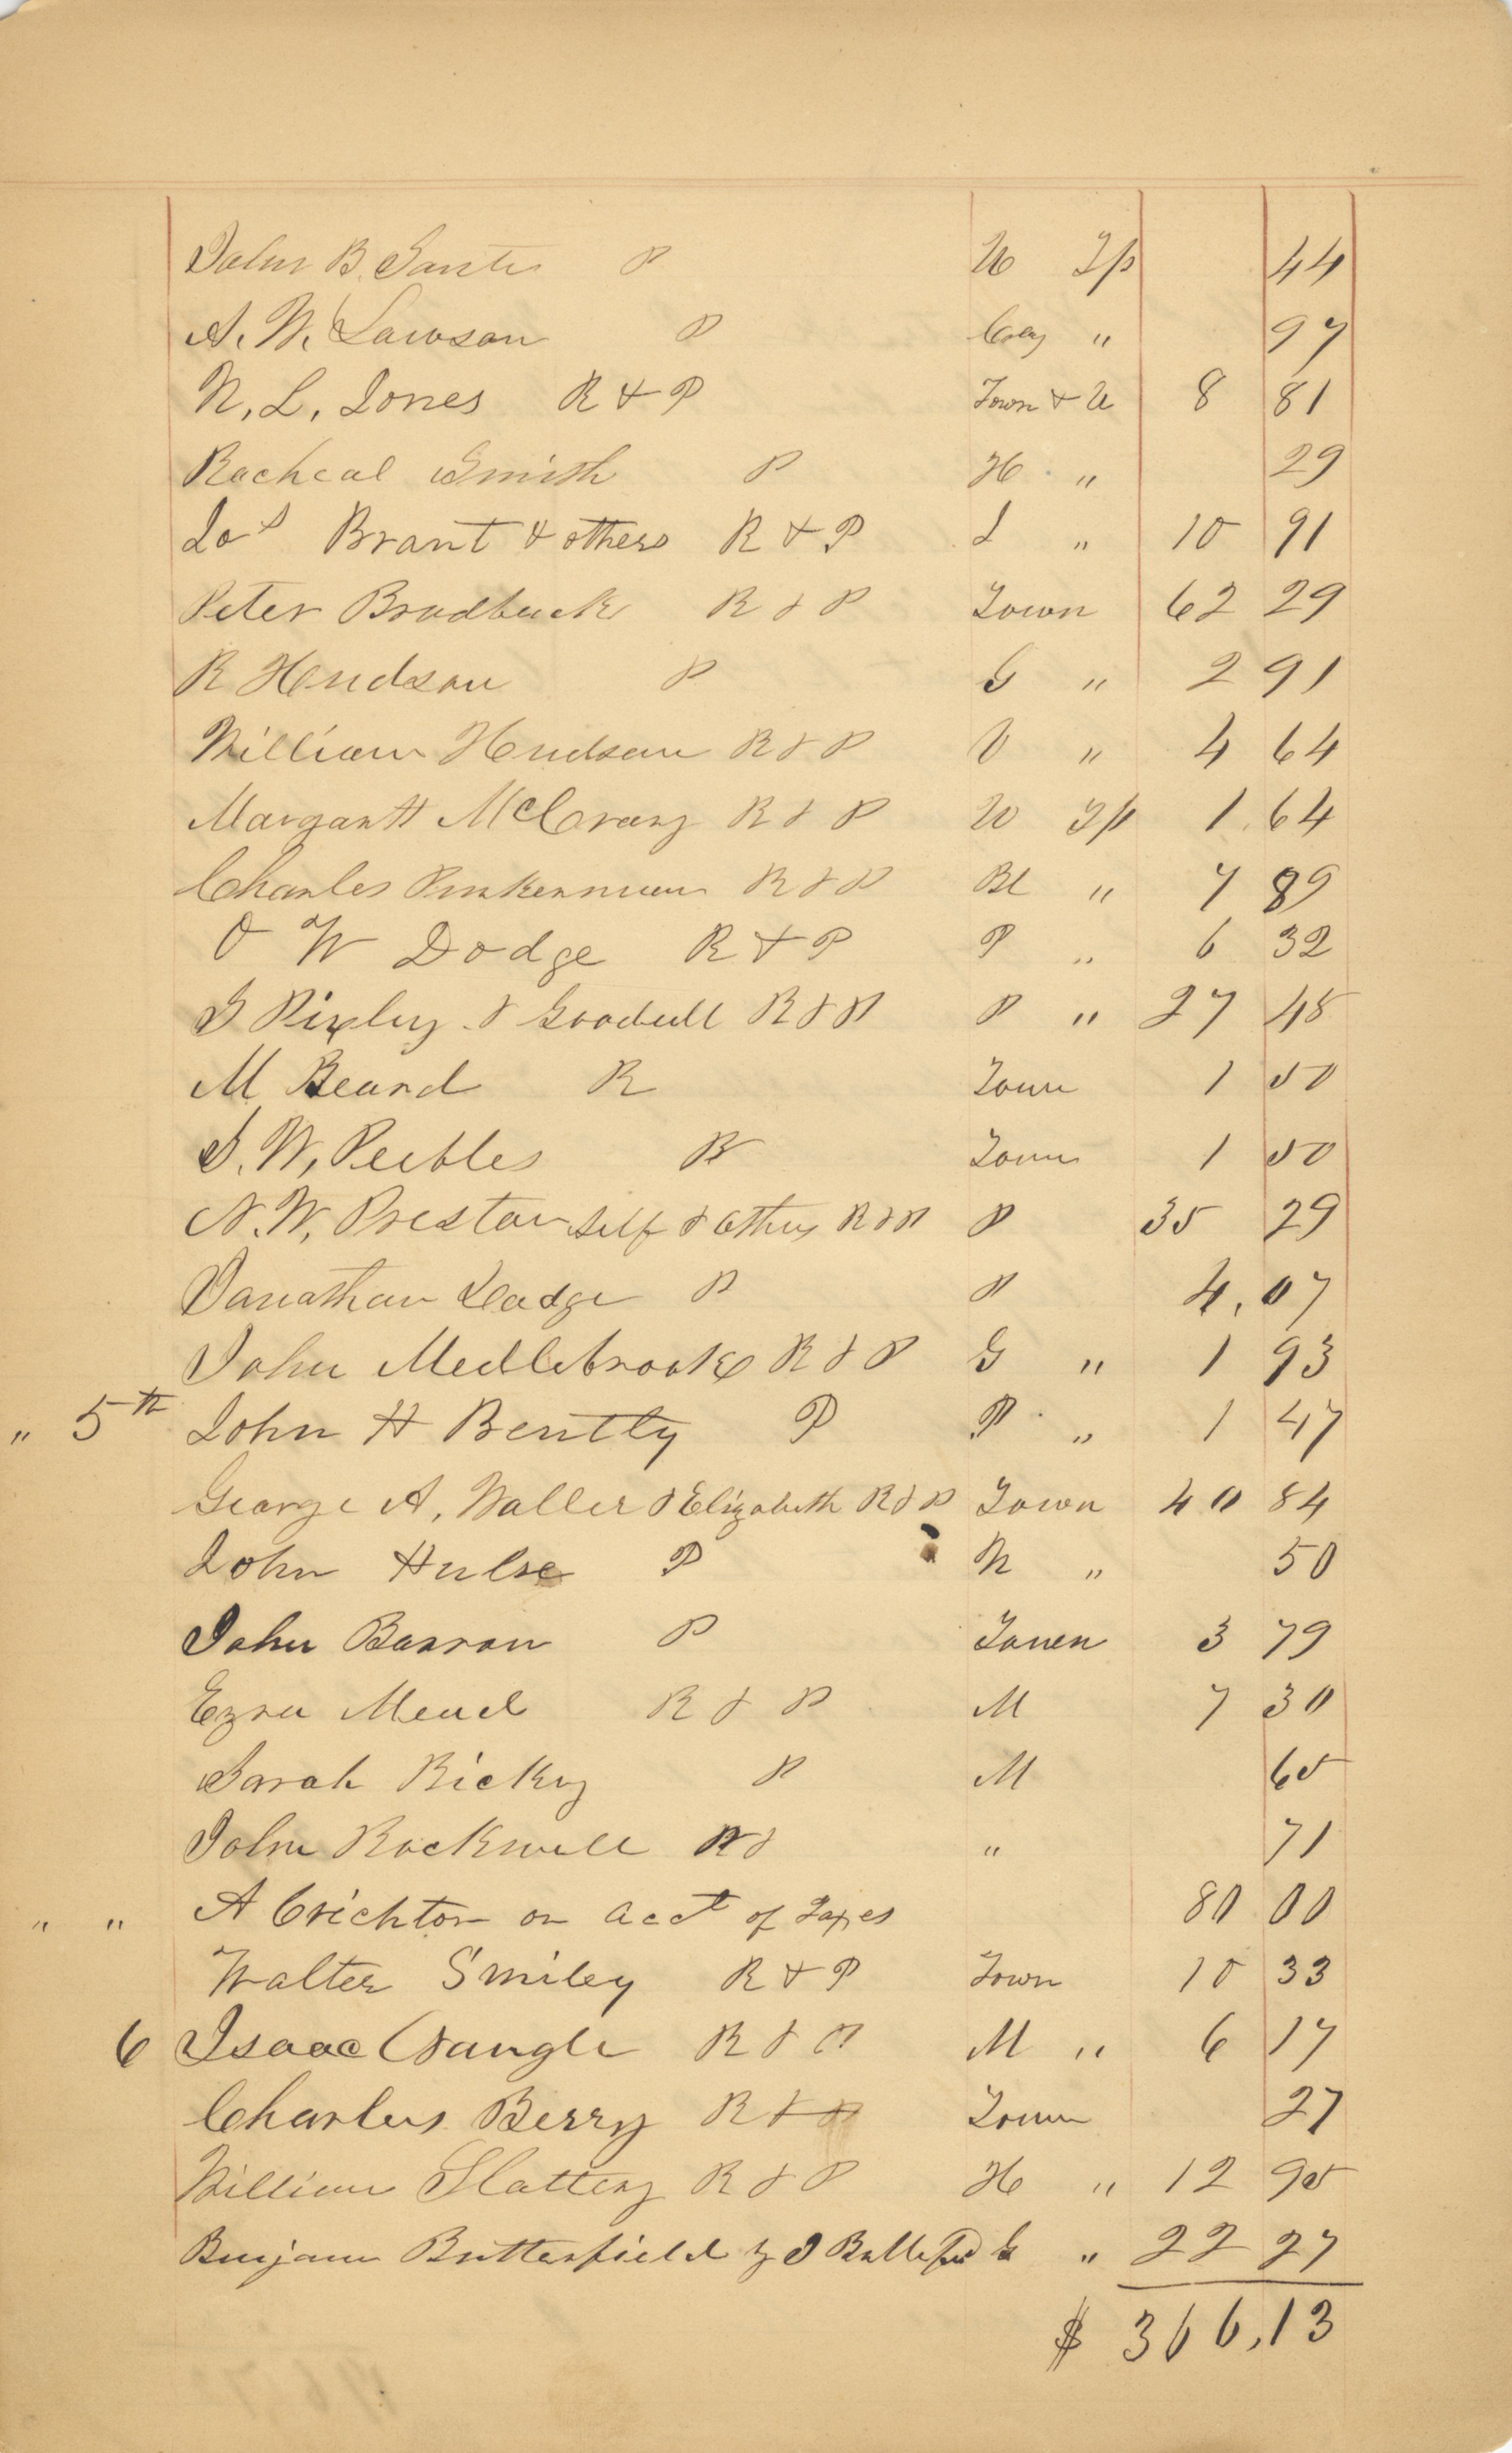 John B. Jantes P U Tp 44
A. W. Lawson P Clay " 97
N. L. Jones R & P Town & U 8 81
Racheal Smith P H " 29
Jos Brant & others R & P J " 10 91
Peter Bradbuck R & P Town 62 29
R Hendson P G " 2 91
William Hendson R & P V " 4 64
Margarett McCrary R & P W Tp 1.64
Charles Pinkerman R & P Bl " 7 89
O W Dodge R & P P " 6 32
G Pixley & Goodell R & P P " 27 45
M Beard R Town 1 50
S. W, Peebles R Town 1 50
N. W, Preston self & others R & P P 35 29
Jonathan Dodge P P 4.07
John Medlebrook R & P G " 1 93
" 5th John H Bently P P " 1 47
George A, Waller & Elizabeth R & P Town 40 84
John Hulse P N " 50
John Barron P Town 3 79
Ezra Mead R & P M 7 30
Sarah Rickey P M 65
John Rockwell R & " 71
" " A Crichton on acct of Taxes 80 00
Walter Smiley R & P Town 10 33
6 Isaac Naugle R & P M " 6 17
Charles Berry R & P Town 27
William Slattery R & P H " 12 95
Benjamn Butterfield by J G " 22 27
$ 366,13